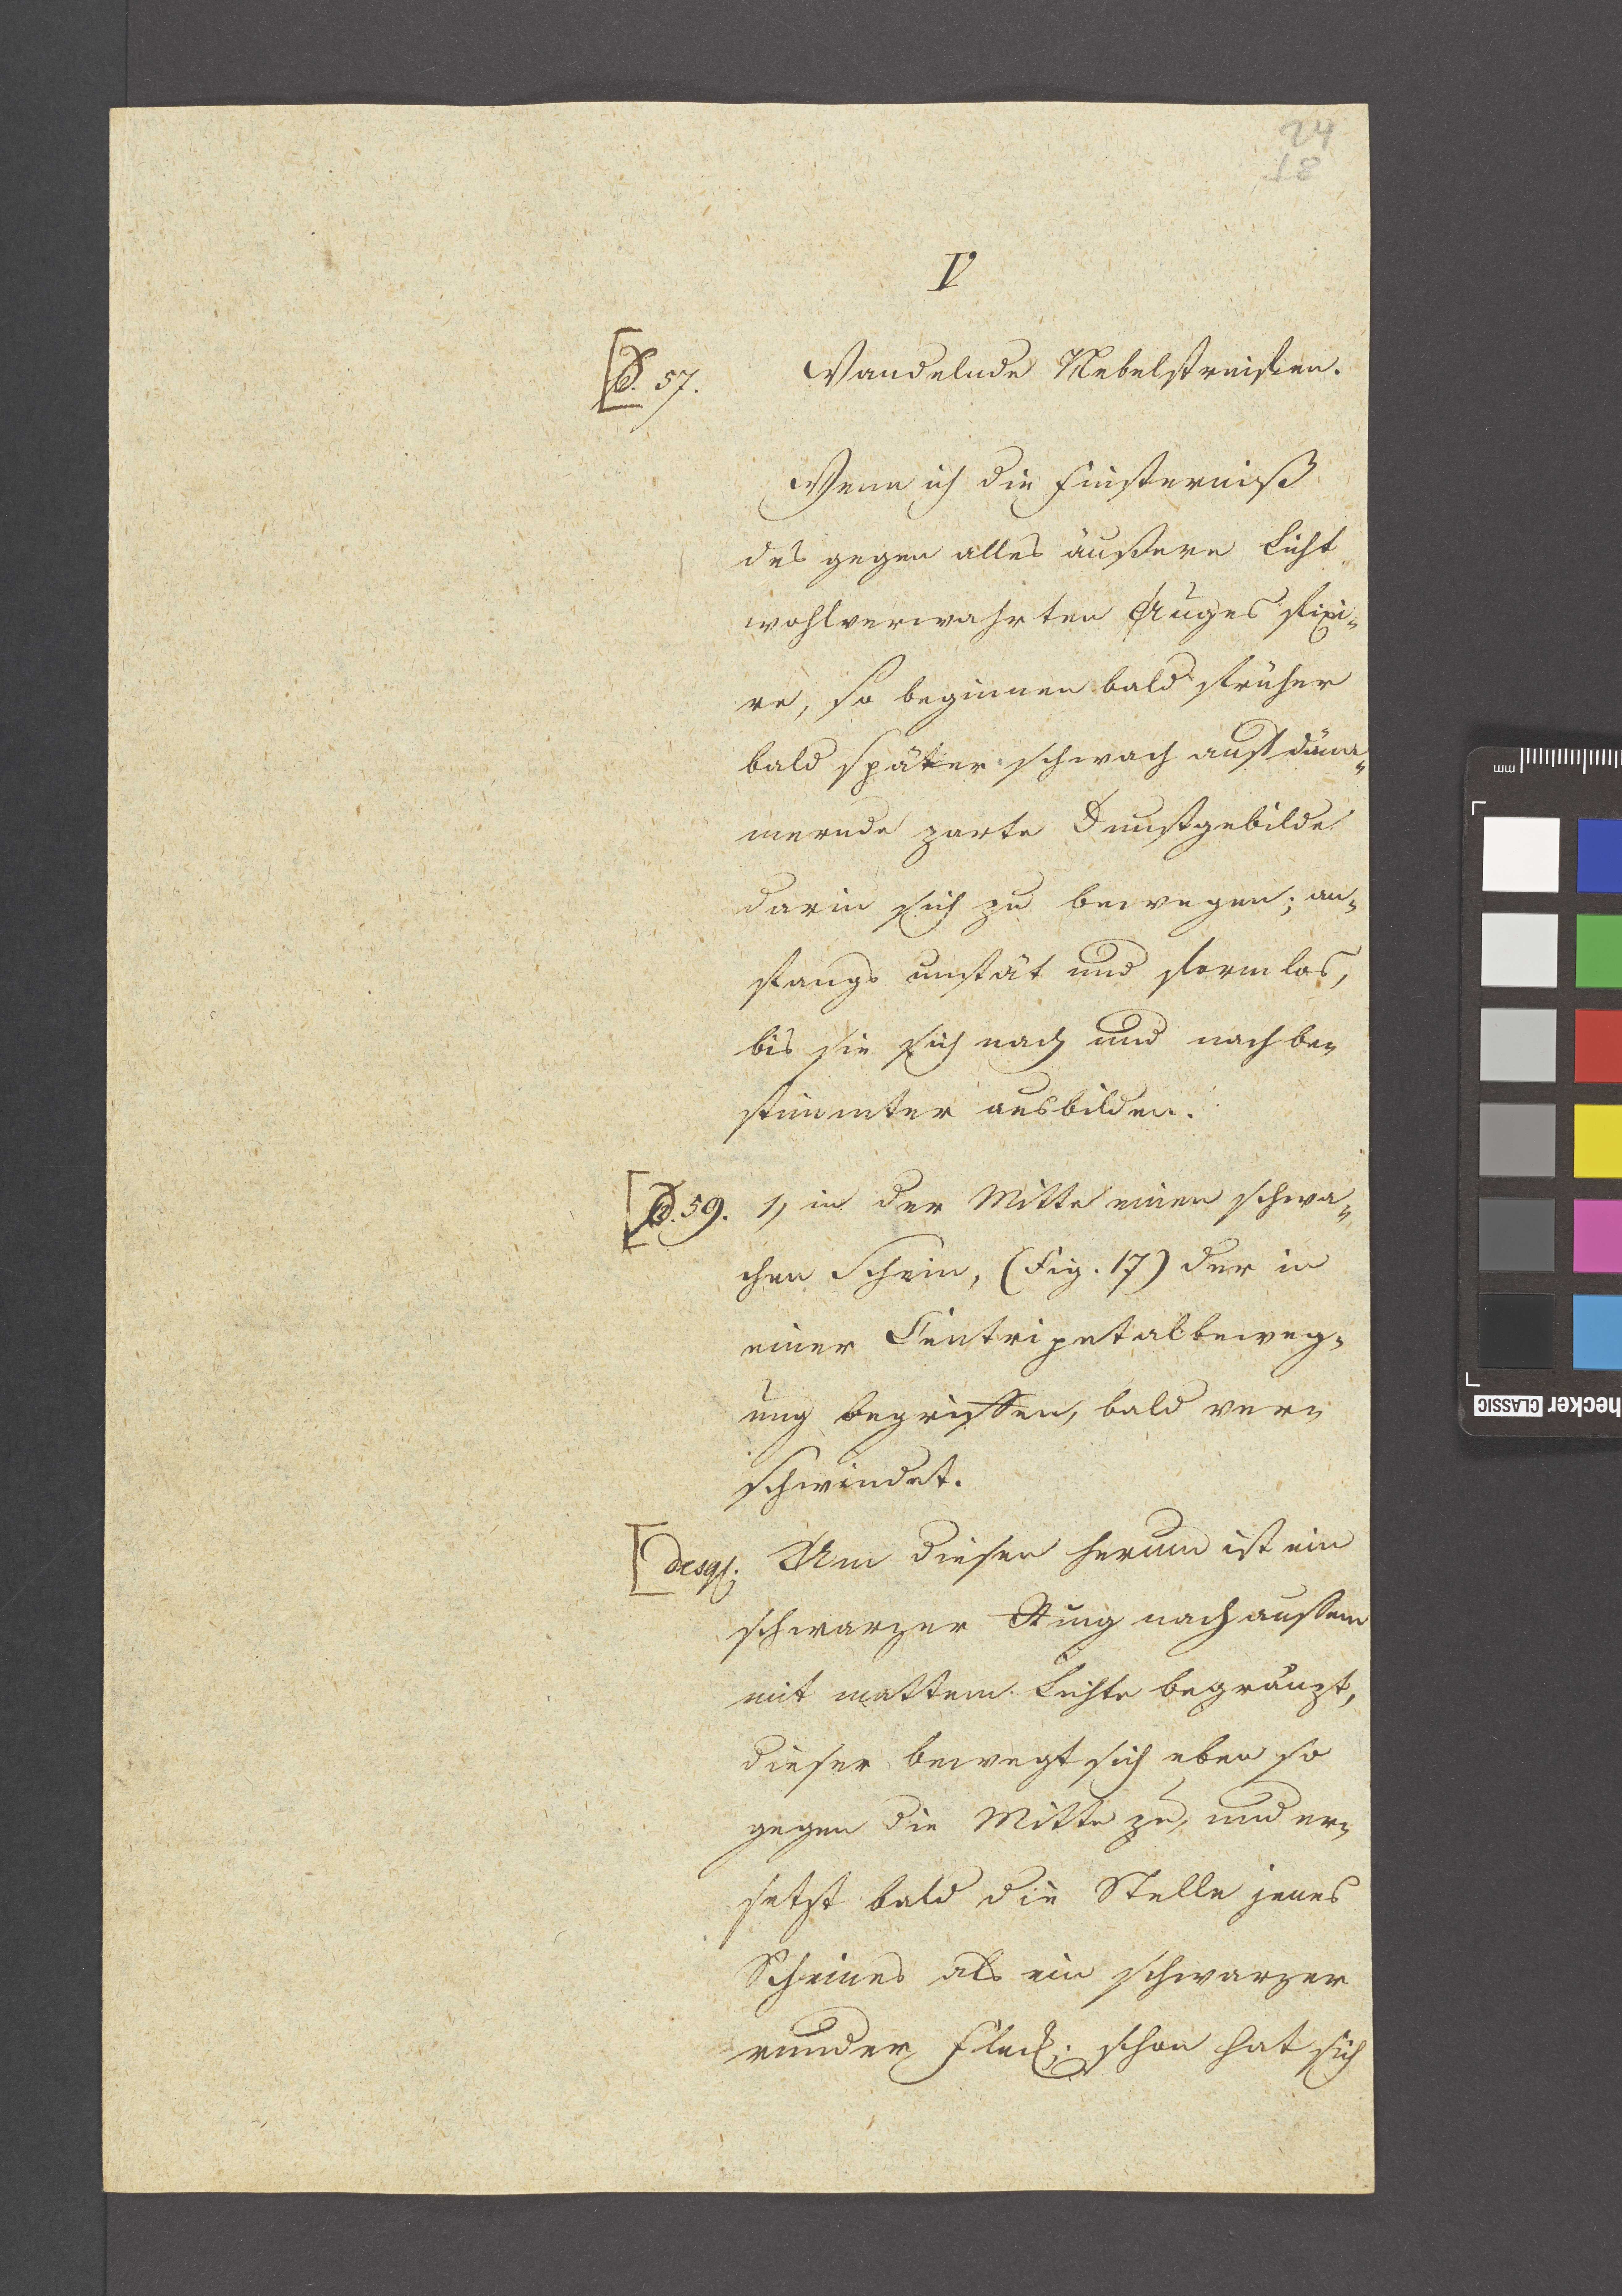 24
18
V
[S. 57. Wandelnde Nebelstreifen.
Wenn ich die Finsterniß
des gegen alles äußere Licht
wohlverwahrten Auges fixi-
re, so beginnen bald früher
bald später schwach aufdäm-
mernde zarte Dunstgebilde
darin sich zu bewegen; an-
fangs unstät und formlos,
bis sie sich nach und nach be-
stimmter ausbilden.
[S. 59. 1, in der Mitte einen schwa-
chen Schein, (Fig. 17) der in
einer Centripetalbeweg-
ung begriffen, bald ver-
schwindet.
[desgl. Um diesen herum ist ein
schwarzer Ring nach aussen
mit mattem Lichte begränzt,
dieser bewegt sich eben so
gegen die Mitte zu, und er-
setzt bald die Stelle jenes
Scheines als ein schwarzer
runder Fleck; schon hat sich
mm
hecker CLASSIC